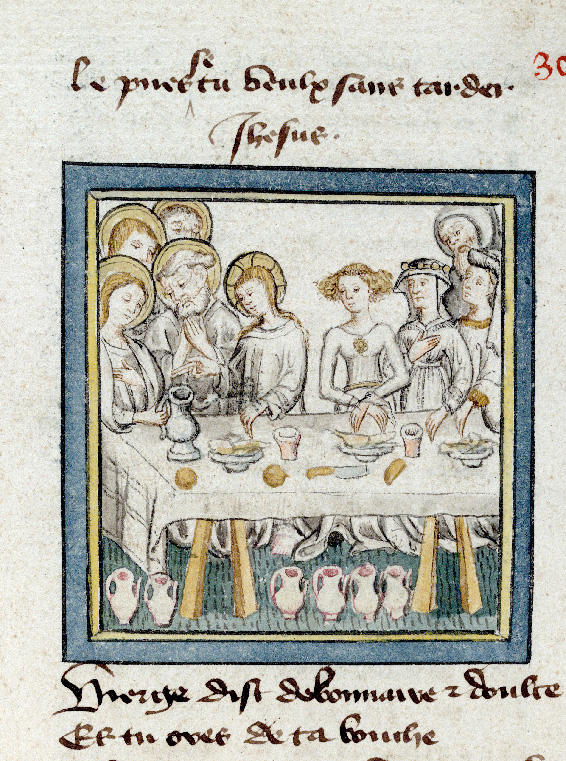 Le pues se tu veulx sans tarder
30
Jhesus.
Vierge dist debonnaire ⁊ doulce
Et tu oyes de ta bouche